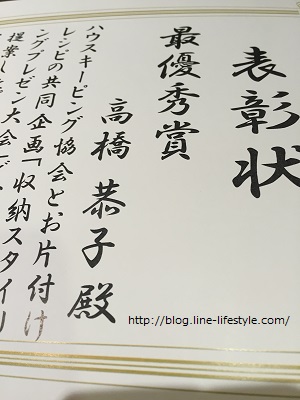 表彰状
最優秀賞
高橋恭子殿
ハウスキーピング協会とお片付け
レシピの共同企画「収納スタイリ
ングプレゼン大会」で
提案し
http://blog.line-lifestyle.com/